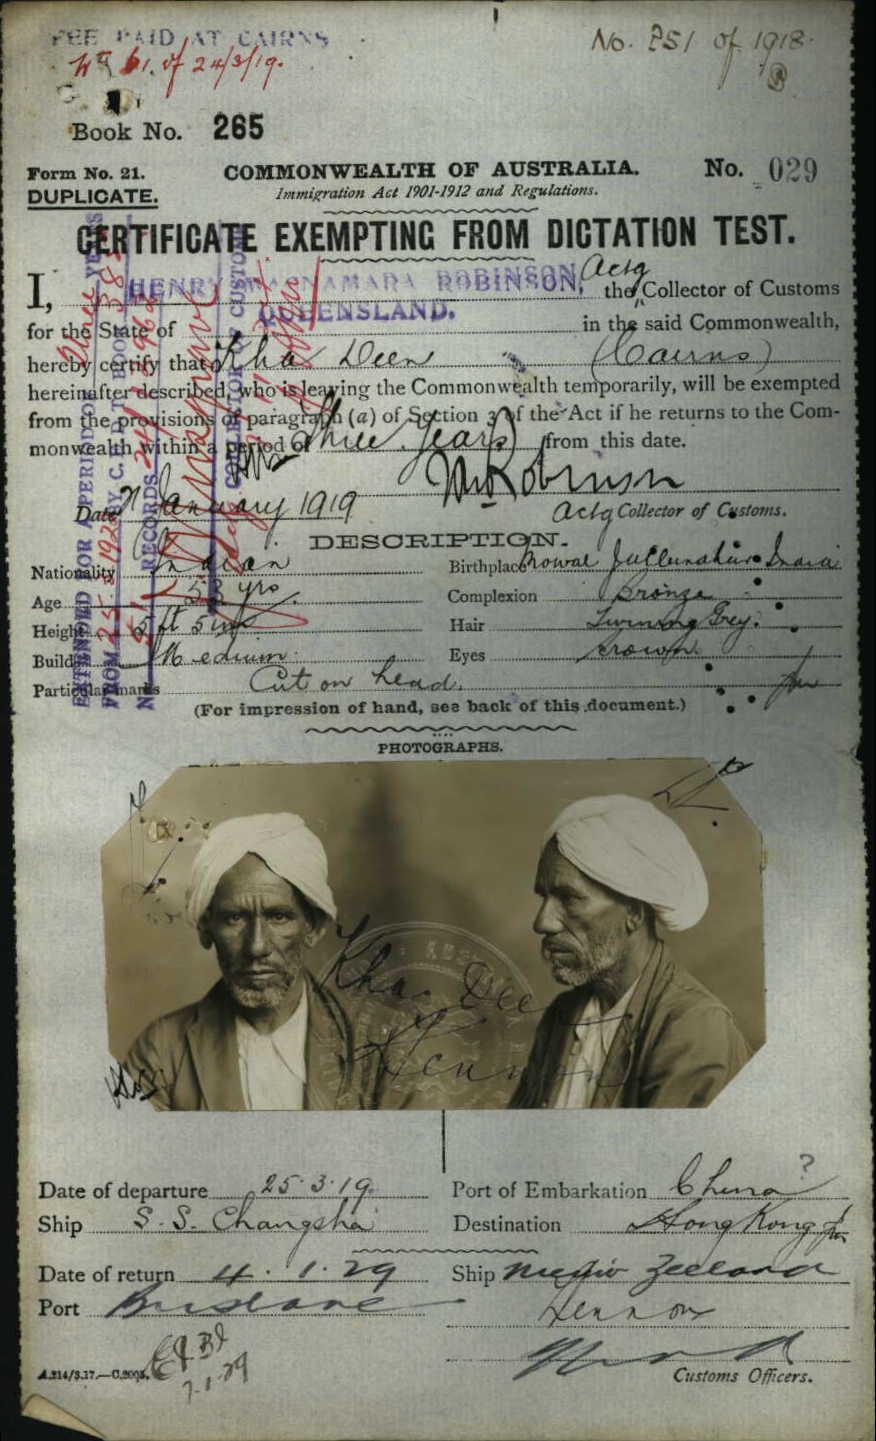 FEE PAID AT CAIRNS
No. 251 of 1918.
of 24/3/19.
Book No. 265
Form No. 21.
COMMONWEALTH OF AUSTRALIA.
No. 029
DUPLICATE.
Immigration Act 1901-1912 and Regulations.
CERTIFICATE EXEMPTING FROM DICTATION TEST.
I, HENRY MACNAMARA ROBINSON, Actg the Collector of Customs
for the State of QUEENSLAND. in the said Commonwealth,
hereby certify that Kha Deen (Cairns)
hereinafter described, who is leaving the Commonwealth temporarily, will be exempted
from the provisions of paragraph (a) of Section 3 of the Act if he returns to the Com-
monwealth within a period of Three Years from this date.
Date January 1919
Actg Collector of Customs.
EXTENDED FOR A PERIOD OF Three YEARS
DESCRIPTION.
Nationality Indian
Birthplace Jullundur India
Age 53 yrs
Complexion Bronze
Height 5 ft 5 ins
Hair Turning Grey.
Build Medium
Eyes Brown
Particular marks Cut on head.
(For impression of hand, see back of this document.)
PHOTOGRAPHS.
Kha Dee
Date of departure 25.3.19.
Port of Embarkation China ?
Ship S.S. Changsha
Destination Hong Kong
Date of return 4.1.29
Ship Zeeland
Port Brisbane
Lennon
7.1.29
Customs Officers.